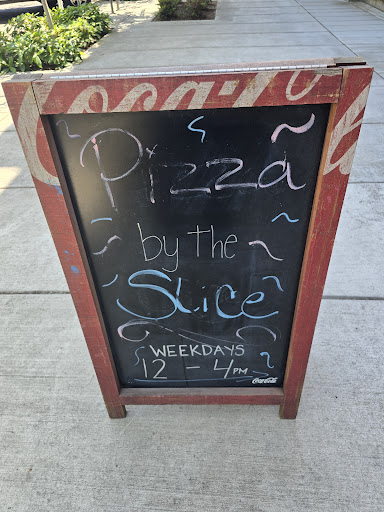 Coca-Cola
Pizza
by the
Slice
WEEKDAYS
12 - 4PM
Coca-Cola